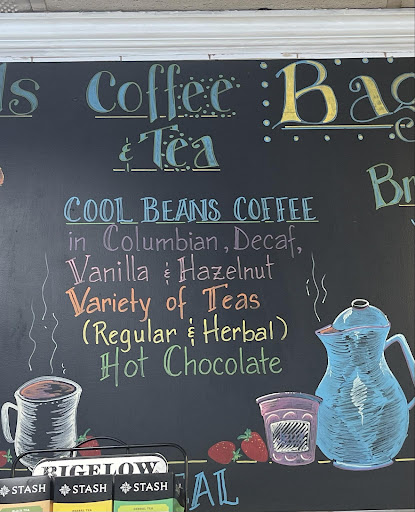 Coffee
& Tea
COOL BEANS COFFEE
in Columbian, Decaf,
Vanilla & Hazelnut
Variety of Teas
(Regular & Herbal)
Hot Chocolate
BIGELOW
STASH STASH STASH